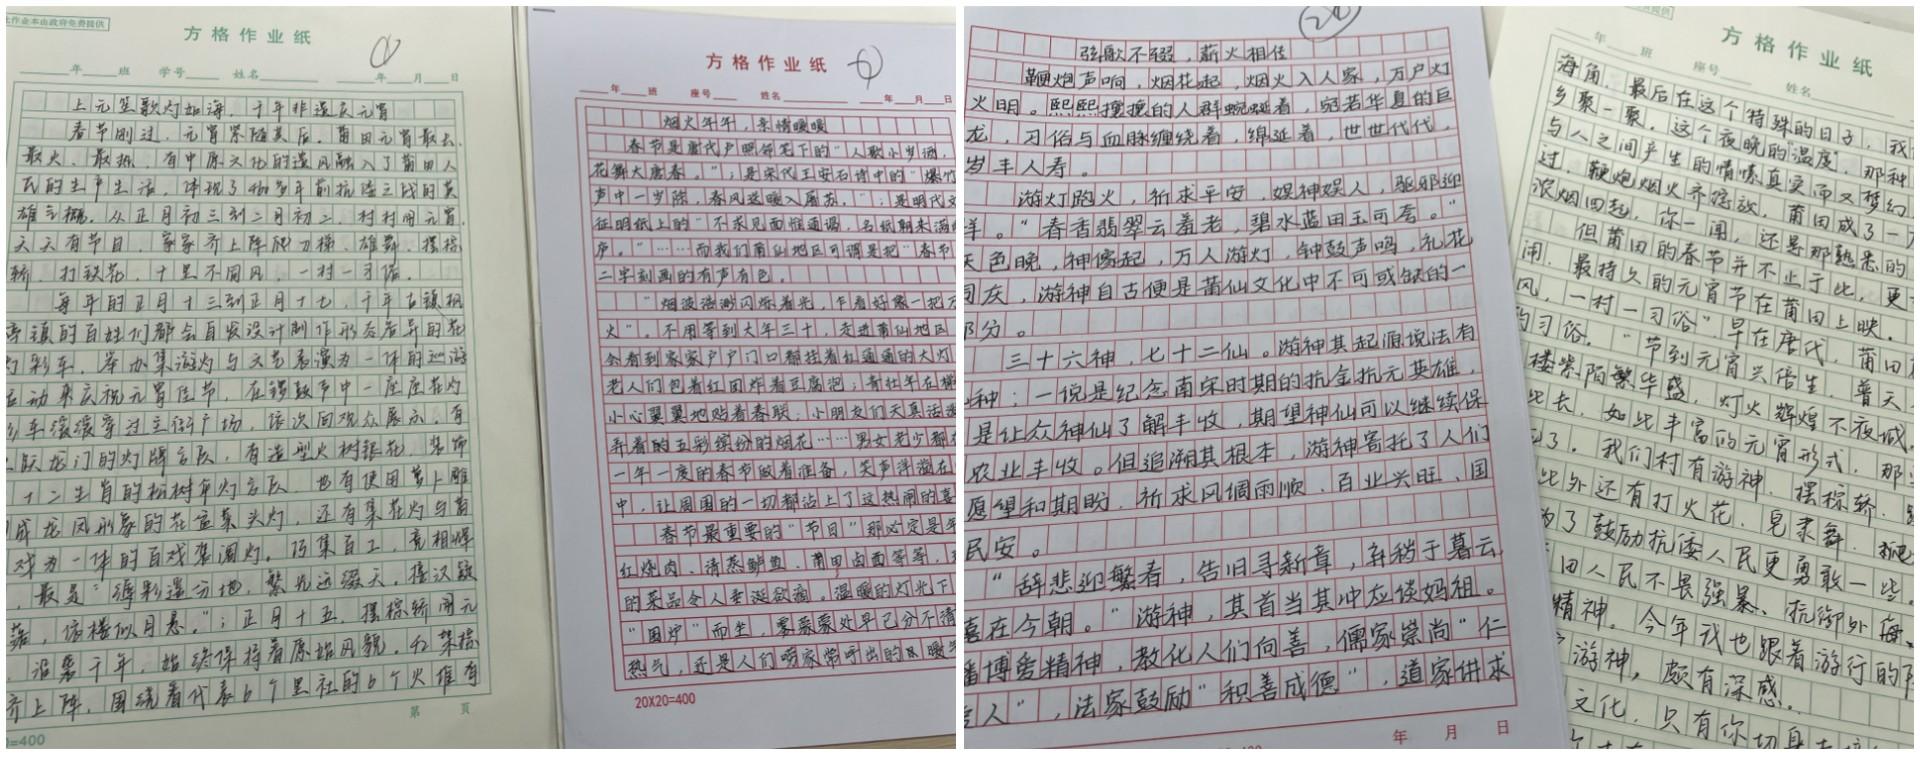 作业本由政府免费提供
方格作业纸
年 班 学号 姓名 年 月 日
上元笙歌灯如海，千年非遗庆元宵
春节刚过，元宵紧随其后，莆田元宵最长、
最火、最热，有中原文化的遗风融入了莆田人
民的生产生活，体现了460多年前抗倭之战的英
雄气概。从正月初三到二月初二，村村闹元宵，
天天有节目，家家齐上阵爬刀梯、雄舞、摆棕
轿、打铁花，十里不同风，一村一习俗。
每年的正月十三到正月十七，千年古镇枫
亭镇的百姓们都会自发设计制作形态各异的花
灯彩车，举办集游灯与文艺表演为一体的巡游
活动来庆祝元宵佳节，在锣鼓声中一座座花灯
彩车缓缓穿过主街广场，依次向观众展示，有
跃龙门的灯牌方队，有造型火树银花、装饰
十二生肖的松树伞灯方队，也有使用萝卜雕
成龙凤形象的花盆菜头灯，还有集花灯与莆
戏为一体的百戏装阁灯。巧集百工，竞相媲
，最是“薄彩遥分地，繁光远缀天。接汉疑
落，依楼似月悬。”；正月十五，摆棕轿闹元
，沿袭千年，始终保持着原始风貌，42架棕
齐上阵，围绕着代表6个里社的6个火堆有
第 页
=400
方格作业纸
年 班 座号 姓名 年 月 日
烟火年年，亲情暖暖
春节是唐代卢照邻笔下的“人歌小岁酒，
花舞大唐春。”；是宋代王安石诗中的“爆竹
声中一岁除，春风送暖入屠苏。”；是明代文
征明纸上的“不求见面惟通谒，名纸朝来满
庐。”……而我们莆仙地区可谓是把“春节
二字刻画的有声有色。
“烟波浩渺闪烁着光，乍看好像一把
火”。不用等到大年三十，走进莆仙地区
会看到家家户户门口都挂着红通通的大灯
老人们包着红团炸着豆腐泡；青壮年在梯
小心翼翼地贴着春联；小朋友们天真活泼
弄着的五彩缤纷的烟花……男女老少都
一年一度的春节做着准备，笑声洋溢在
中，让周围的一切都沾上了这热闹的喜
春节最重要的“节目”那必定是年
红烧肉、清蒸鲈鱼、莆田卤面等等，
的菜品令人垂涎欲滴。温暖的灯光下
“围炉”而坐，雾蒙蒙处早已分不清
热气，还是人们唠家常呼出的暖气
20X20=400
弦歌不辍，薪火相传
鞭炮声响，烟花起，烟火入人家，万户灯
火明。熙熙攘攘的人群蜿蜒着，宛若华夏的巨
龙，习俗与血脉缠绕着，绵延着，世世代代，
岁丰人寿。
游灯跑火，祈求平安，娱神娱人，驱邪迎
祥。“春香翡翠云羞老，碧水蓝田玉可奁。”
天色晚，神像起，万人游灯，钟鼓声鸣，礼花
同庆，游神自古便是莆仙文化中不可或缺的一
部分。
三十六神，七十二仙。游神其起源说法有
种；一说是纪念南宋时期的抗金抗元英雄，
是让众神仙了解丰收，期望神仙可以继续保
农业丰收。但追溯其根本，游神寄托了人们
愿望和期盼，祈求风调雨顺、百业兴旺、国
民安。
“辞悲迎繁春，告旧寻新章，弃稍于暮云，
喜在今朝。”游神，其首当其冲应谈妈祖。
播博爱精神，教化人们向善，儒家崇尚“仁
爱人”，法家鼓励“积善成德”，道家讲求
年 月 日
方格作业纸
年 班 座号 姓名
海角，最后在这个特殊的日子，我
乡聚一聚，这个夜晚的“温度”，那种
与人之间产生的情愫真实而又梦幻
过，鞭炮烟火齐绽放，莆田成了一
浓烟四起，你一闻，还是那熟悉的
但莆田的春节并不止于此，更
闹、最持久的元宵节在莆田上映。
风，一村一习俗”，早在唐代，莆田
的习俗。“节到元宵兴倍生，普天
楼紫陌繁华盛，灯火辉煌不夜城。
此长，如此丰富的元宵形式，那
了。我们村有游神、摆棕轿、
此外还有打火花、皂隶舞、
为了鼓励抗倭人民更勇敢一些。
田人民不畏强暴、抗御外侮
精神。今年我也跟着游行的
游神，颇有深感。
文化，只有你切身